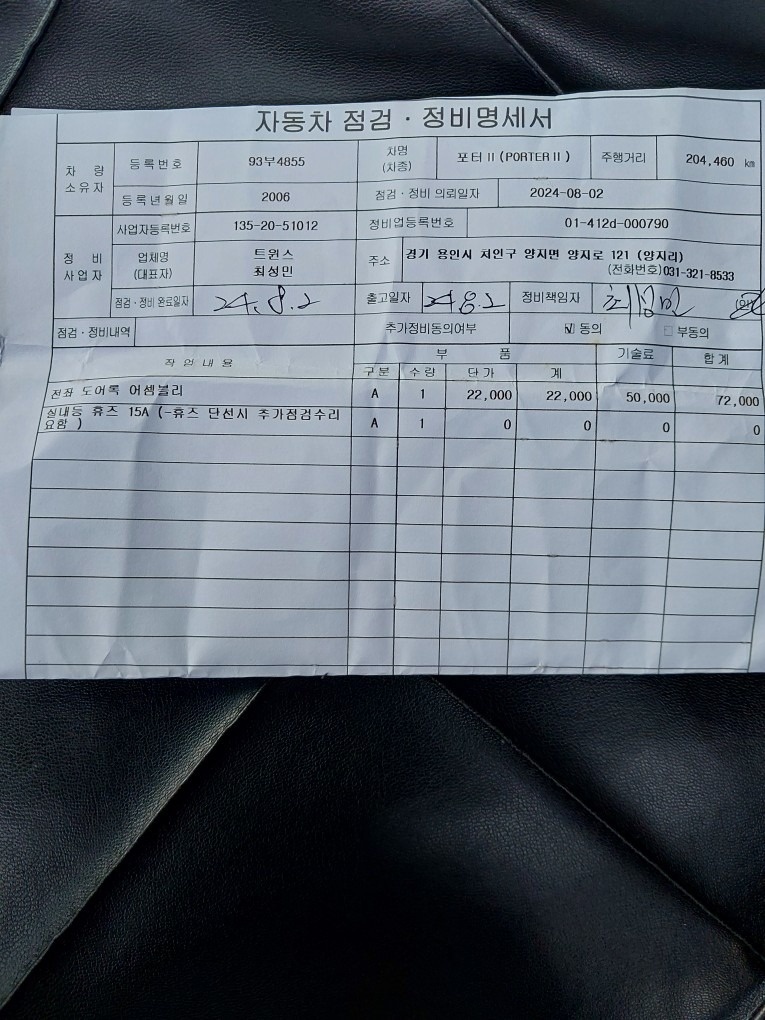 자동차 점검 · 정비명세서
차 량 소유자
등록번호 93부4855 차명 (차종) 포터 II (PORTER II) 주행거리 204,460 km
등록년월일 2006 점검 · 정비 의뢰일자 2024-08-02
정 비 사업자
사업자등록번호 135-20-51012 정비업등록번호 01-412d-000790
업체명 (대표자) 트윈스 최성민 주소 경기 용인시 처인구 양지면 양지로 121 (양지리) (전화번호)031-321-8533
점검 · 정비 완료일자 24.8.2 출고일자 24.8.2 정비책임자 최성민 (인)
점검 · 정비내역 추가정비동의여부 ☑ 동의 □ 부동의
작업내용 부 품 기술료 합계
구분 수량 단가 계
전좌 도어록 어셈블리 A 1 22,000 22,000 50,000 72,000
실내등 휴즈 15A (-휴즈 단선시 추가점검수리
요함 ) A 1 0 0 0 0